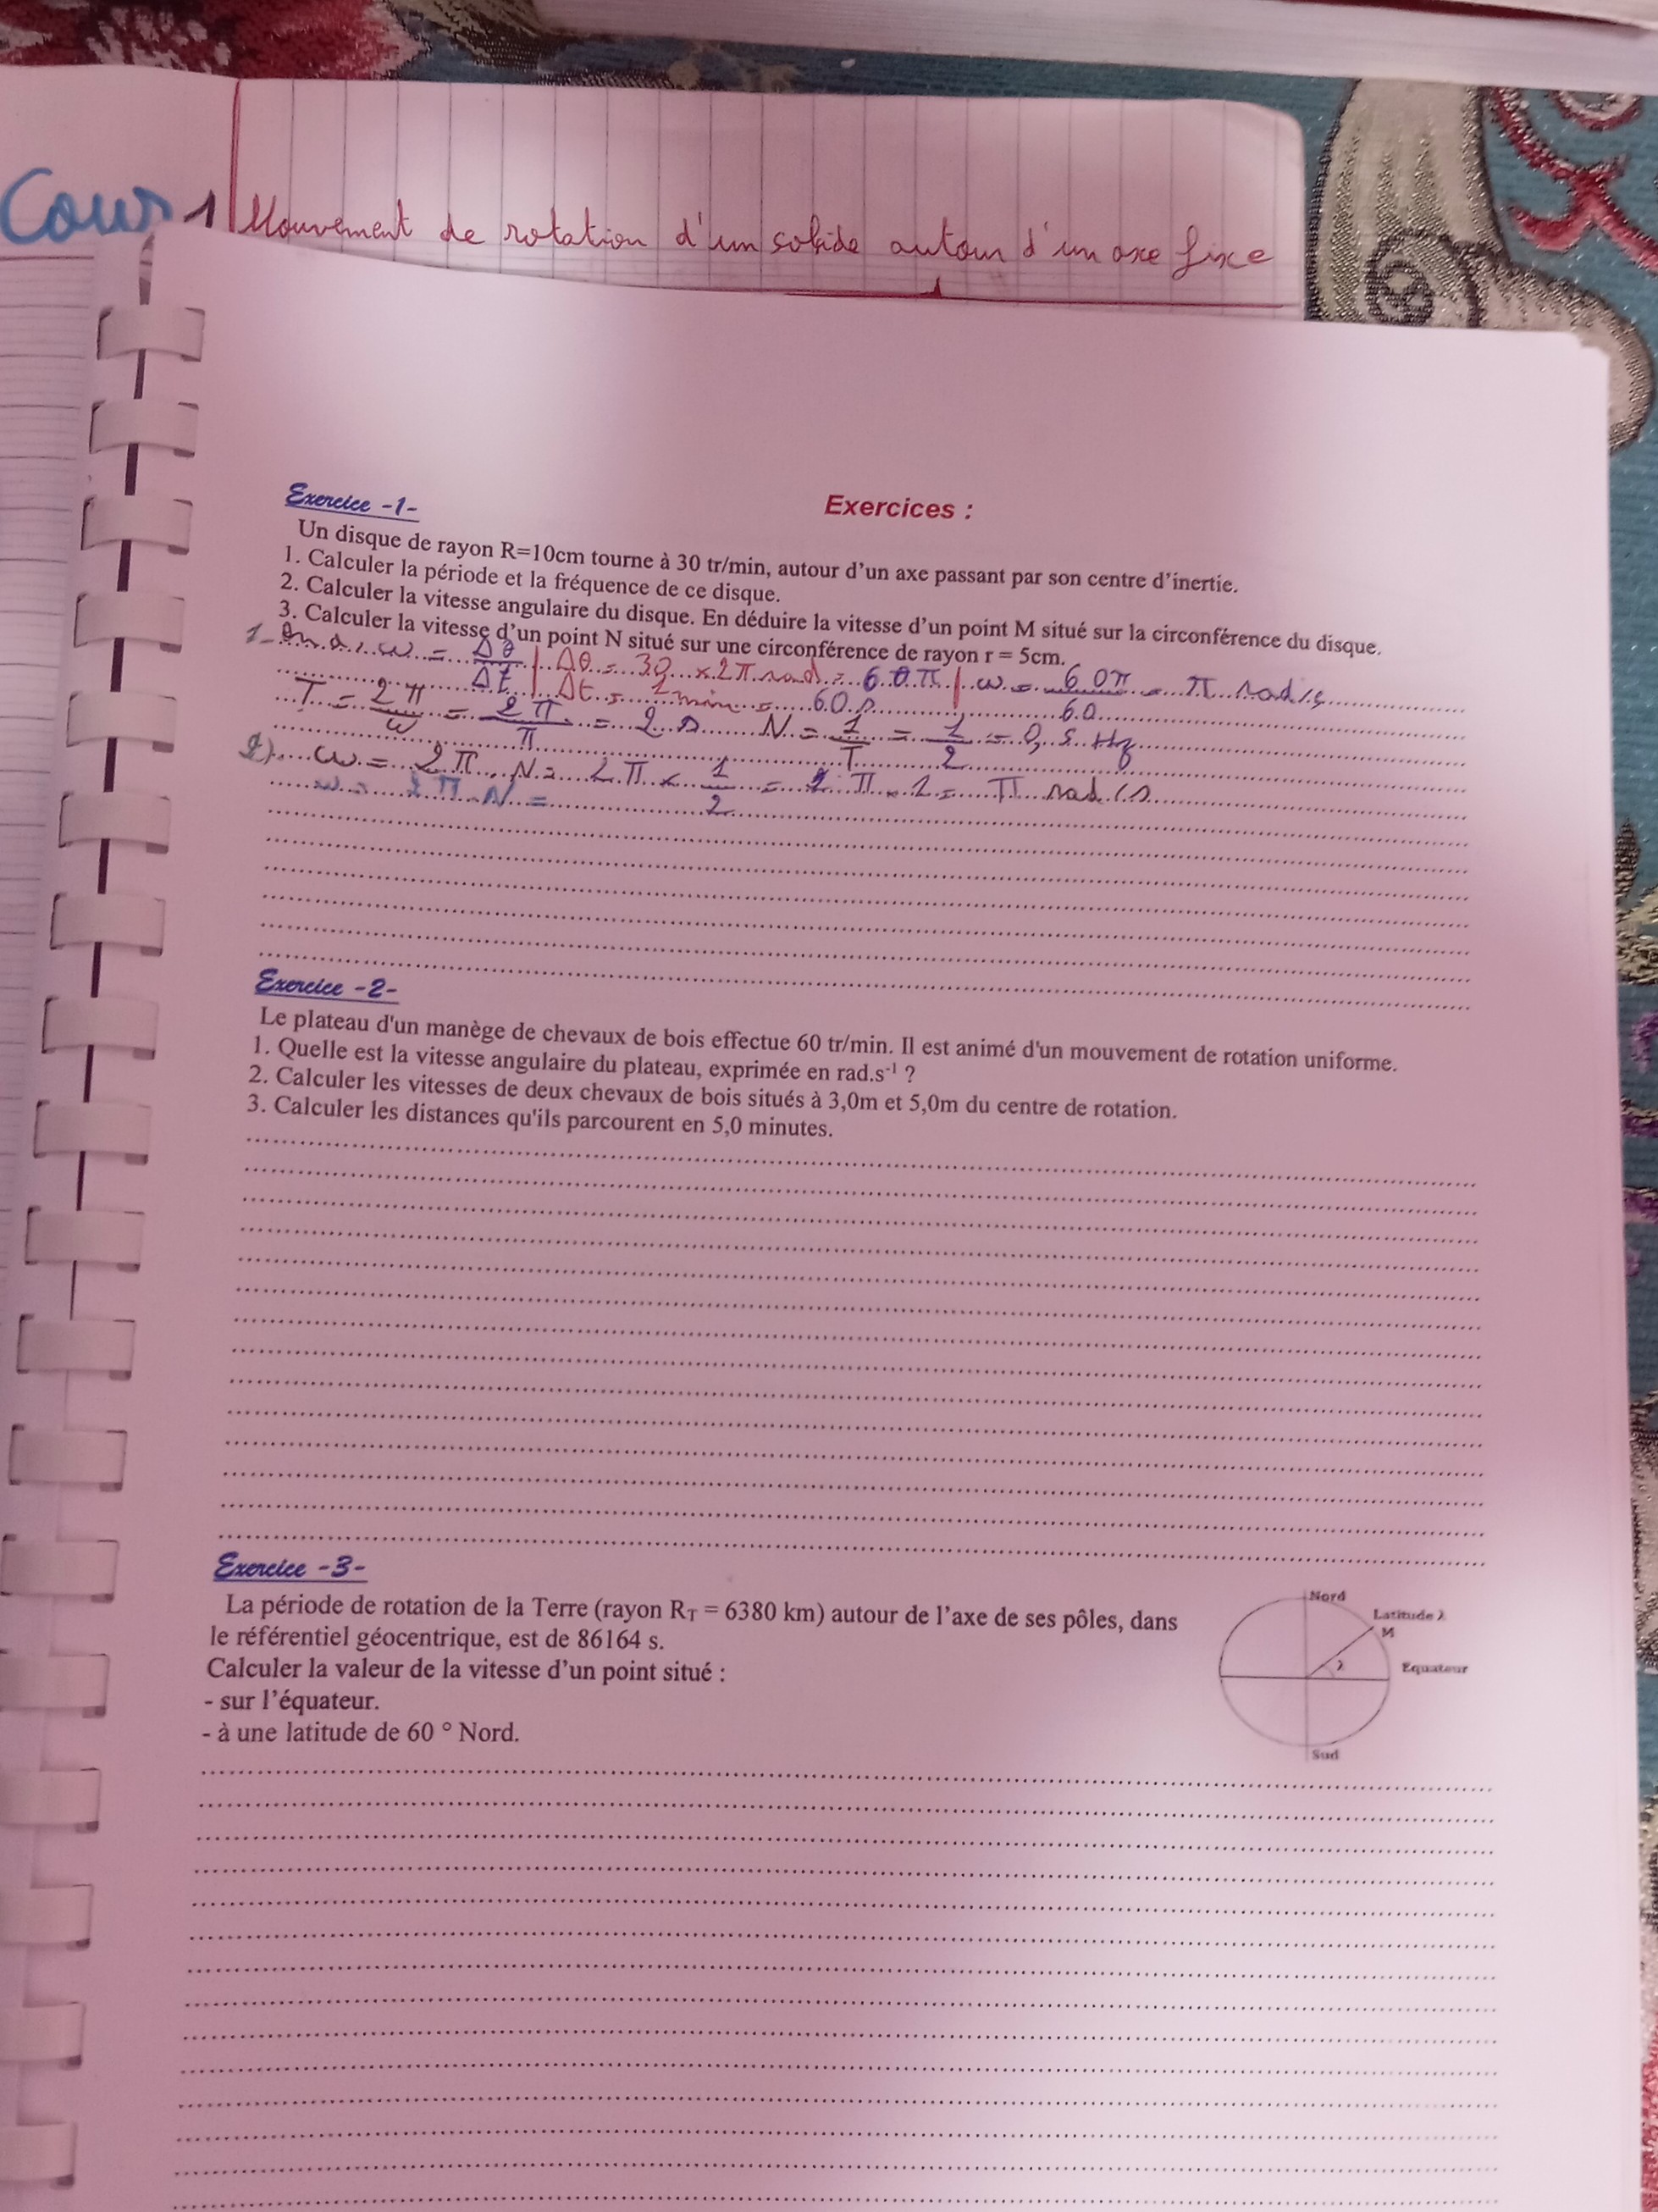 Cours 1 Mouvement de rotation d'un solide autour d'un axe fixe
Exercices :
Exercice -1-
Un disque de rayon R=10cm tourne à 30 tr/min, autour d'un axe passant par son centre d'inertie.
1. Calculer la période et la fréquence de ce disque.
2. Calculer la vitesse angulaire du disque. En déduire la vitesse d'un point M situé sur la circonférence du disque.
3. Calculer la vitesse d'un point N situé sur une circonférence de rayon r = 5cm.
1- On a, ω = Δθ/Δt | Δθ = 30 x 2π rad = 60π | ω = 60π/60 = π rad/s
Δt = 1 min = 60 s
T = 2π/ω = 2π/π = 2 s N = 1/T = 1/2 = 0,5 Hz
2) ω = 2π . N = 2π x 1/2 = π x 1 = π rad/s
ω = 2π . N =
Exercice -2-
Le plateau d'un manège de chevaux de bois effectue 60 tr/min. Il est animé d'un mouvement de rotation uniforme.
1. Quelle est la vitesse angulaire du plateau, exprimée en rad.s⁻¹ ?
2. Calculer les vitesses de deux chevaux de bois situés à 3,0m et 5,0m du centre de rotation.
3. Calculer les distances qu'ils parcourent en 5,0 minutes.
Exercice -3-
La période de rotation de la Terre (rayon R_T = 6380 km) autour de l'axe de ses pôles, dans
le référentiel géocentrique, est de 86164 s.
Calculer la valeur de la vitesse d'un point situé :
- sur l'équateur.
- à une latitude de 60 ° Nord.
Nord
Latitude λ
M
λ
Equateur
Sud